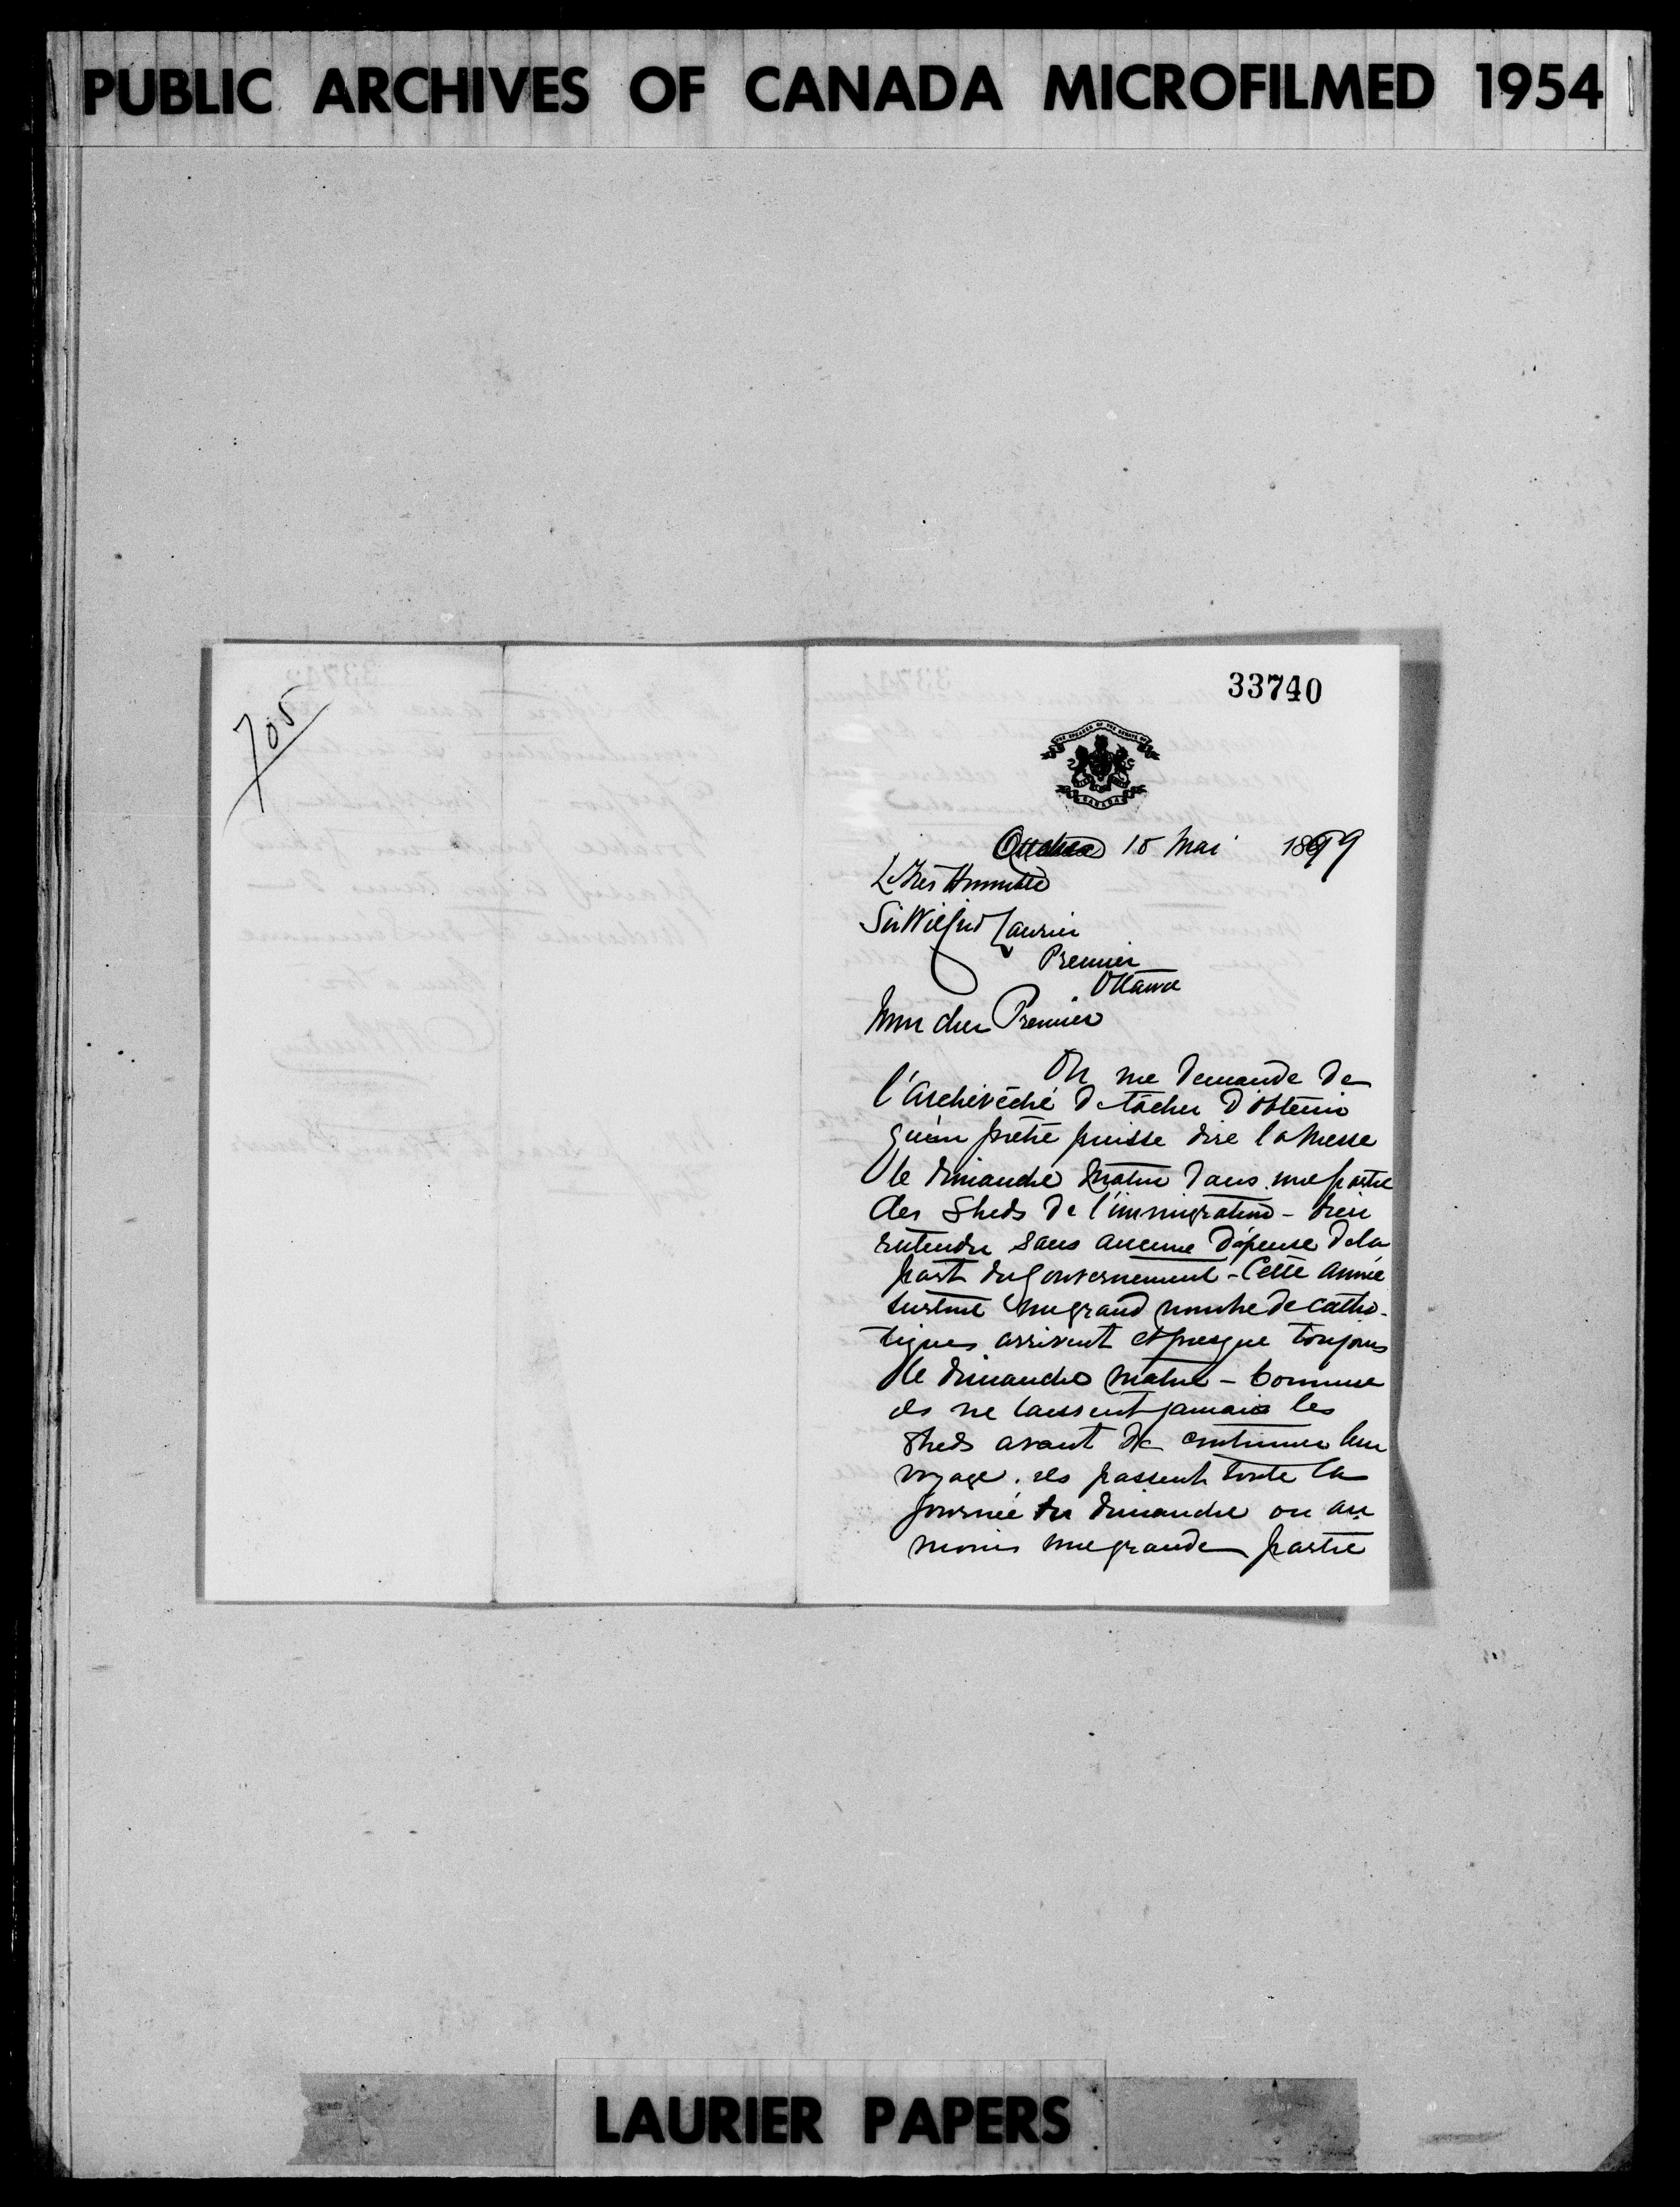 PUBLIC ARCHIVES OF CANADA MICROFILMED 1954
705
33740
THE SPEAKER OF THE SENATE OF
CANADA
15 Mai 1899
L'Très Honorable
Sir Wilfrid Laurier
Premier
Ottawa
Mon cher Premier
On me demande de
l'Archevêché de tâcher d'obtenir
qu'un prêtre puisse dire la Messe
le dimanche matin dans une partie
des Sheds de l'immigration - bien
entendu sans aucune dépense de la
part du Gouvernement - Cette année
surtout un grand nombre de catho-
liques arrivent et presque toujours
le dimanche matin - Comme
ils ne laissent jamais les
Sheds avant de continuer leur
voyage, ils passent toute la
journée du dimanche ou au
moins une grande partie
LAURIER PAPERS